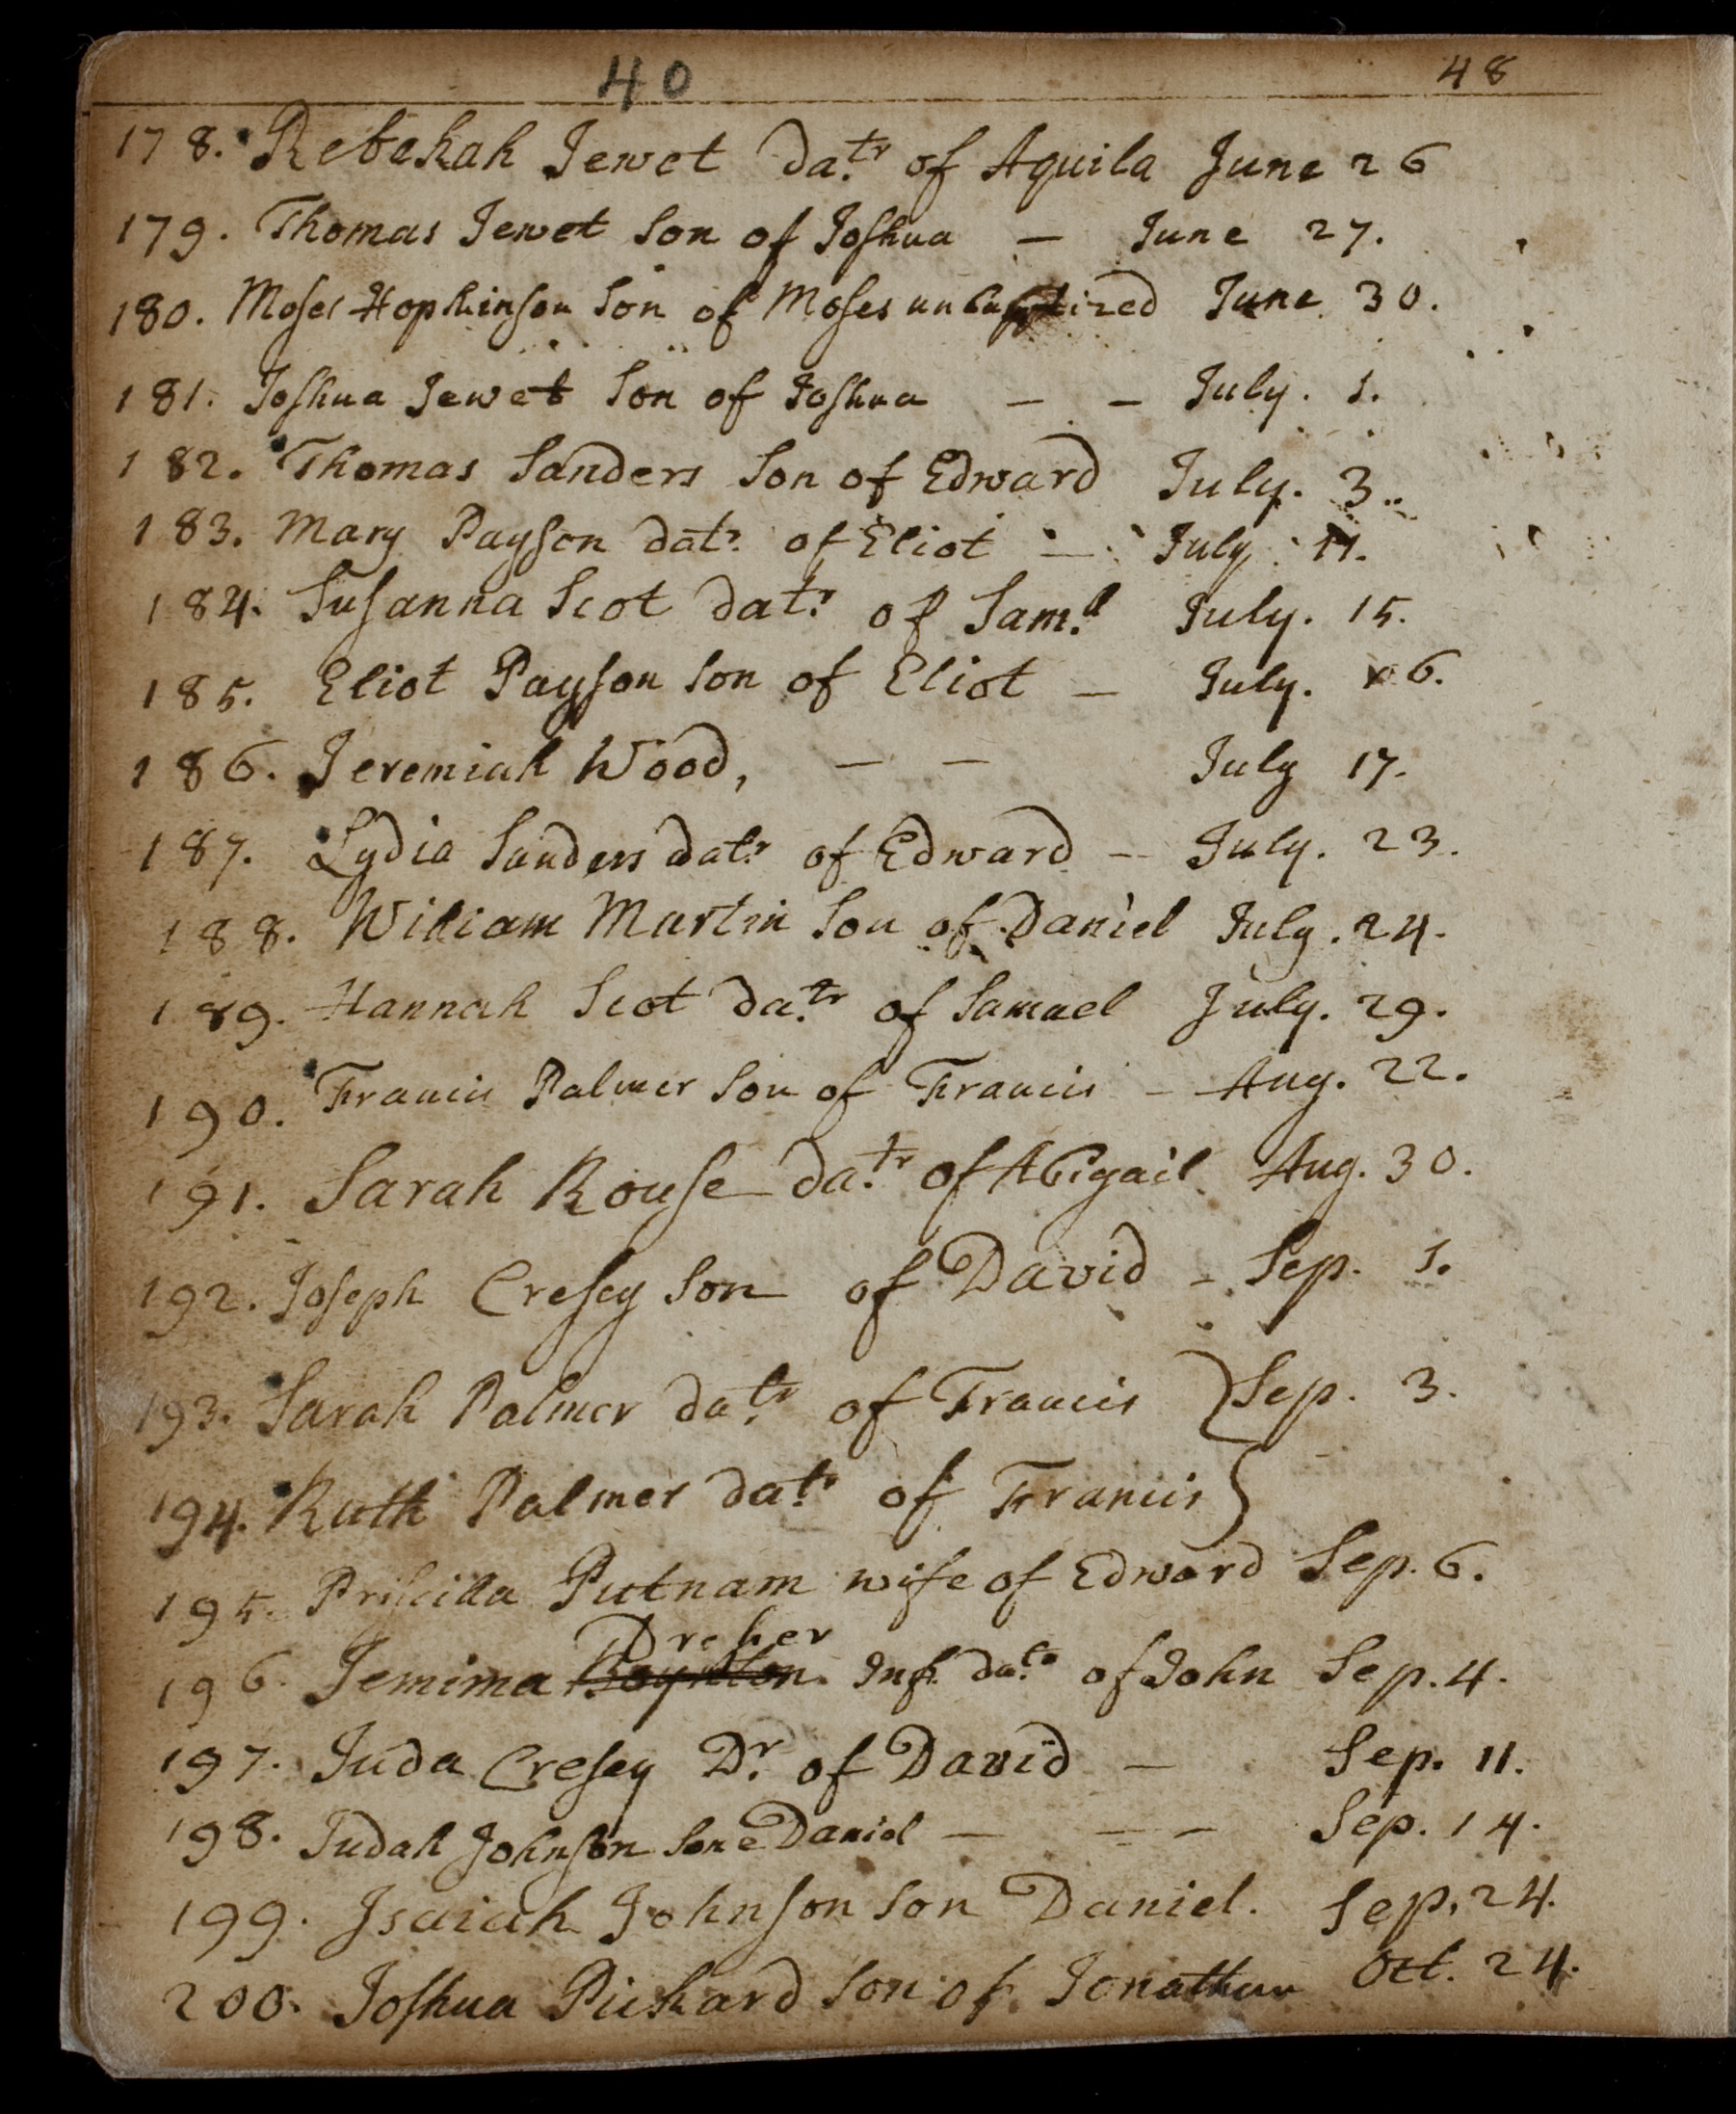 40 48
178. Rebekah Jewet datr of Aquila June 26
179. Thomas Jewet Son of Joshua — June 27.
180. Moses Hopkinson Son of Moses unbaptized June 30.
181. Joshua Jewet Son of Joshua — — July. 1.
182. Thomas Sanders Son of Edward July. 3.
183. Mary Payson datr. of Eliot — July 11.
184. Susanna Scot datr. of Saml. July. 15.
185. Eliot Payson Son of Eliot — July. 16.
186. Jeremiah Wood, — — July 17.
187. Lydia Sanders datr. of Edward — July. 23.
188. William Martin Son of Daniel July. 24.
189. Hannah Scot datr. of Samuel July. 29.
190. Francis Palmer Son of Francis — Aug. 22.
191. Sarah Rouse datr. of Abigail Aug. 30.
192. Joseph Cresey Son of David — Sep. 1.
193. Sarah Palmer datr. of Francis } Sep. 3.
194. Ruth Palmer datr. of Francis }
195. Priscilla Putnam wife of Edward Sep. 6.
Dreser
196. Jemima Boynton Inft datr. of John Sep. 4.
197. Juda Cresey Dr. of David — Sep. 11.
198. Judah Johnson Son e Daniel — — — Sep. 14.
199. Isaiah Johnson Son Daniel. Sep. 24.
200. Joshua Pickard Son of Jonathan Oct. 24.